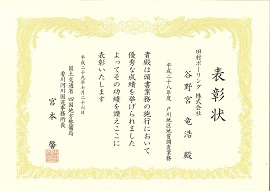 表彰状
田村ボーリング 株式会社
谷野宮 竜浩 殿
平成二十八年度 戸川地区地質調査業務
貴殿は頭書業務の施行において
優秀な成績を挙げられました
よってその功績を讃えここに
表彰いたします
平成二十九年七月二十六日
国土交通省 四国地方整備局
香川河川国道事務所長
宮本 馨